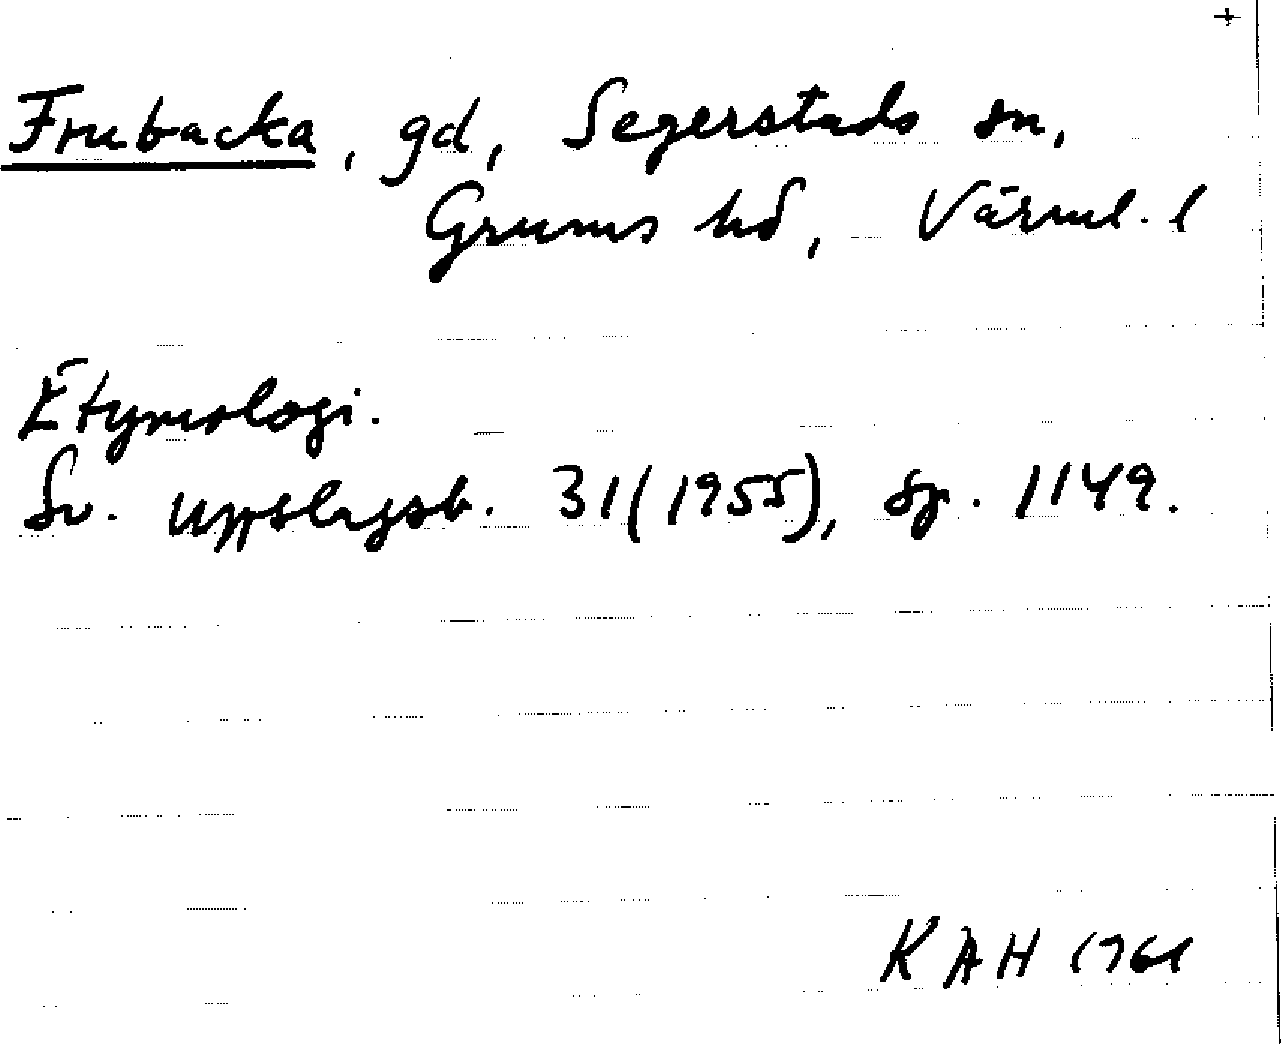 +
Frubacka, gd, Segerstads sn,
Grums hd, Värml. l
Etymologi.
Sv. uppslagsb. 31(1955), sp. 1149.
KAH 1961